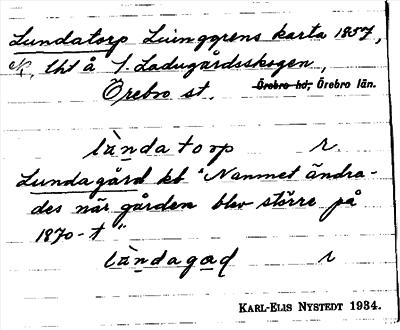 Lundatorp Ljunggrens karta 1857,
lht å S. Ladugårdsskogen,
Örebro st. Örebro hd, Örebro län.
lùndatorp r.
Lundagård kb "Namnet ändra-
des när gården blev större på
1870-t"
lùndagaḍ r
KARL-ELIS NYSTEDT 1934.